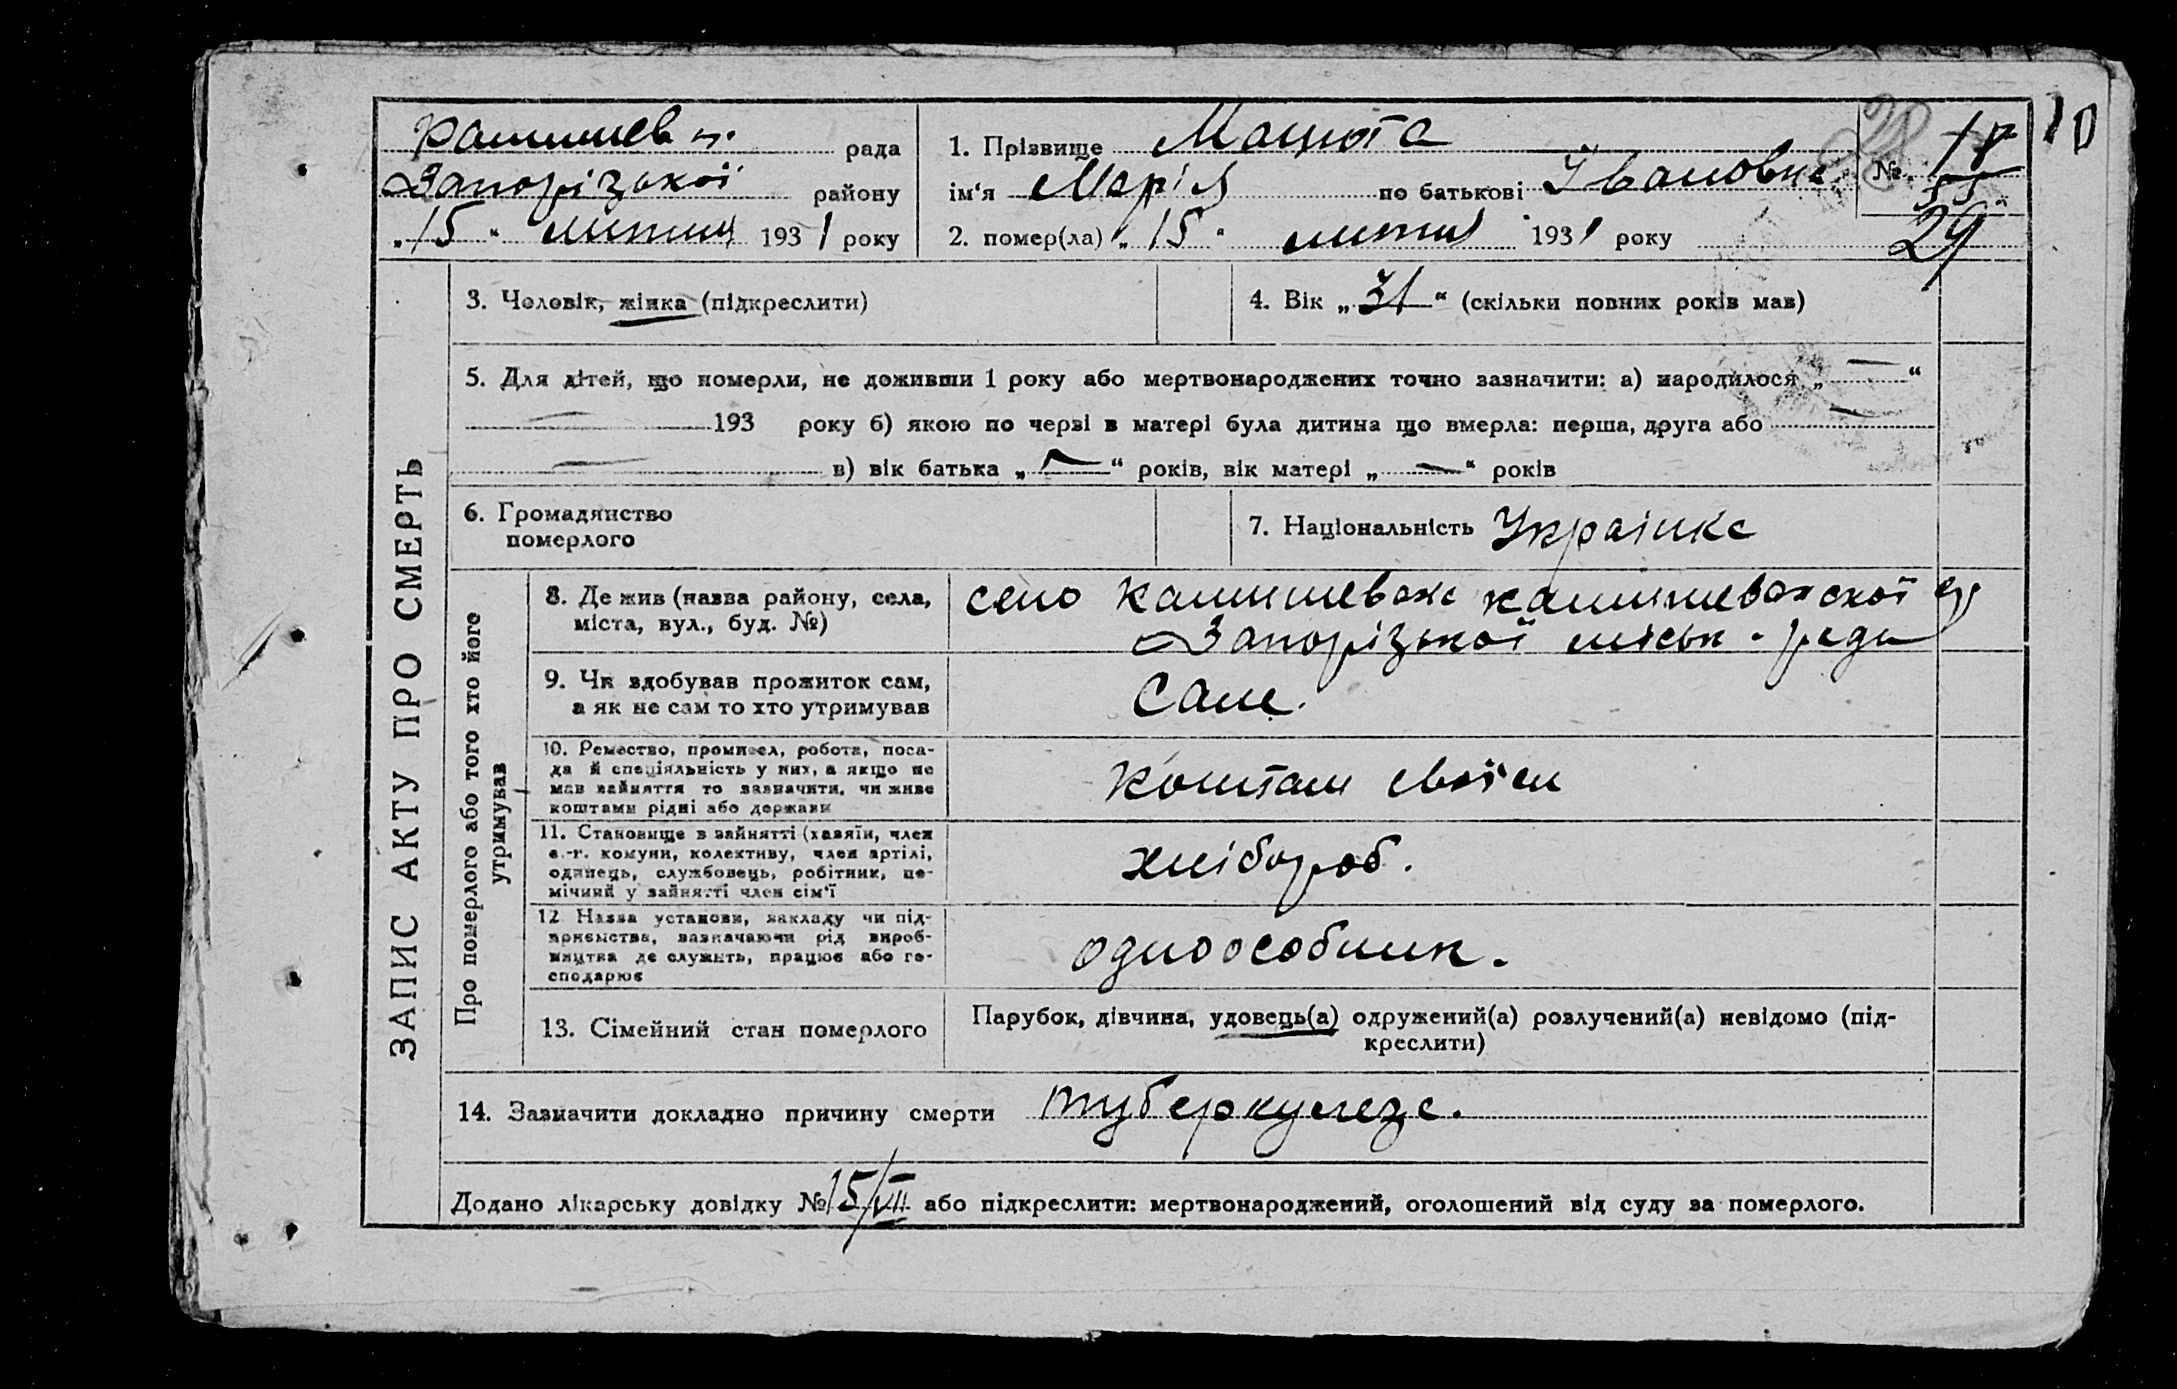 Камишев н. рада
Запорізької району
„15“ лютня 1931 року
1. Прізвище Мацюта
ім‘я Марія по батькові Івановна
№ 18
55
29
10
2. помер(ла) „15“ лютня 1931 року
ЗАПИС АКТУ ПРО СМЕРТЬ
3. Чоловік, жінка (підкреслити)
4. Вік „31“ (скільки повних років мав)
5. Для дітей, що померли, не доживши 1 року або мертвонароджених точно зазначити: а) народилося „ — “
— 193 року б) якою по черзі в матері була дитина що вмерла: перша, друга або —
— в) вік батька „ — “ років, вік матері „ — “ років
6. Громадянство
померлого
7. Національність Українка
Про померлого або того хто його
утримував
8. Де жив (назва району, села,
міста, вул., буд. №)
село Камишеваха камишеваської
Запорізької міськ. ради
9. Чи здобував прожиток сам,
а як не сам то хто утримував
Саме.
10. Ремество, промисел, робота, поса-
да й спеціяльність у них, а якщо не
мав зайняття то зазначити, чи живе
коштами рідні або держави
Коштам своїм
11. Становище в зайнятті (хазяїн, член
с.-г. комуни, колективу, член артілі,
одинець, службовець, робітник, по-
мічний у зайнятті член сім‘ї
хлібороб.
12 Назва установи, закладу чи під-
приємства, зазначаючи рід вироб-
ництва де служить, працює або го-
сподарює
одноособник.
13. Сімейний стан померлого
Парубок, дівчина, удовець(а) одружений(а) розлучений(а) невідомо (під-
креслити)
14. Зазначити докладно причину смерти туберкульоза.
Додано лікарську довідку № 15/VII або підкреслити: мертвонароджений, оголошений від суду за померлого.